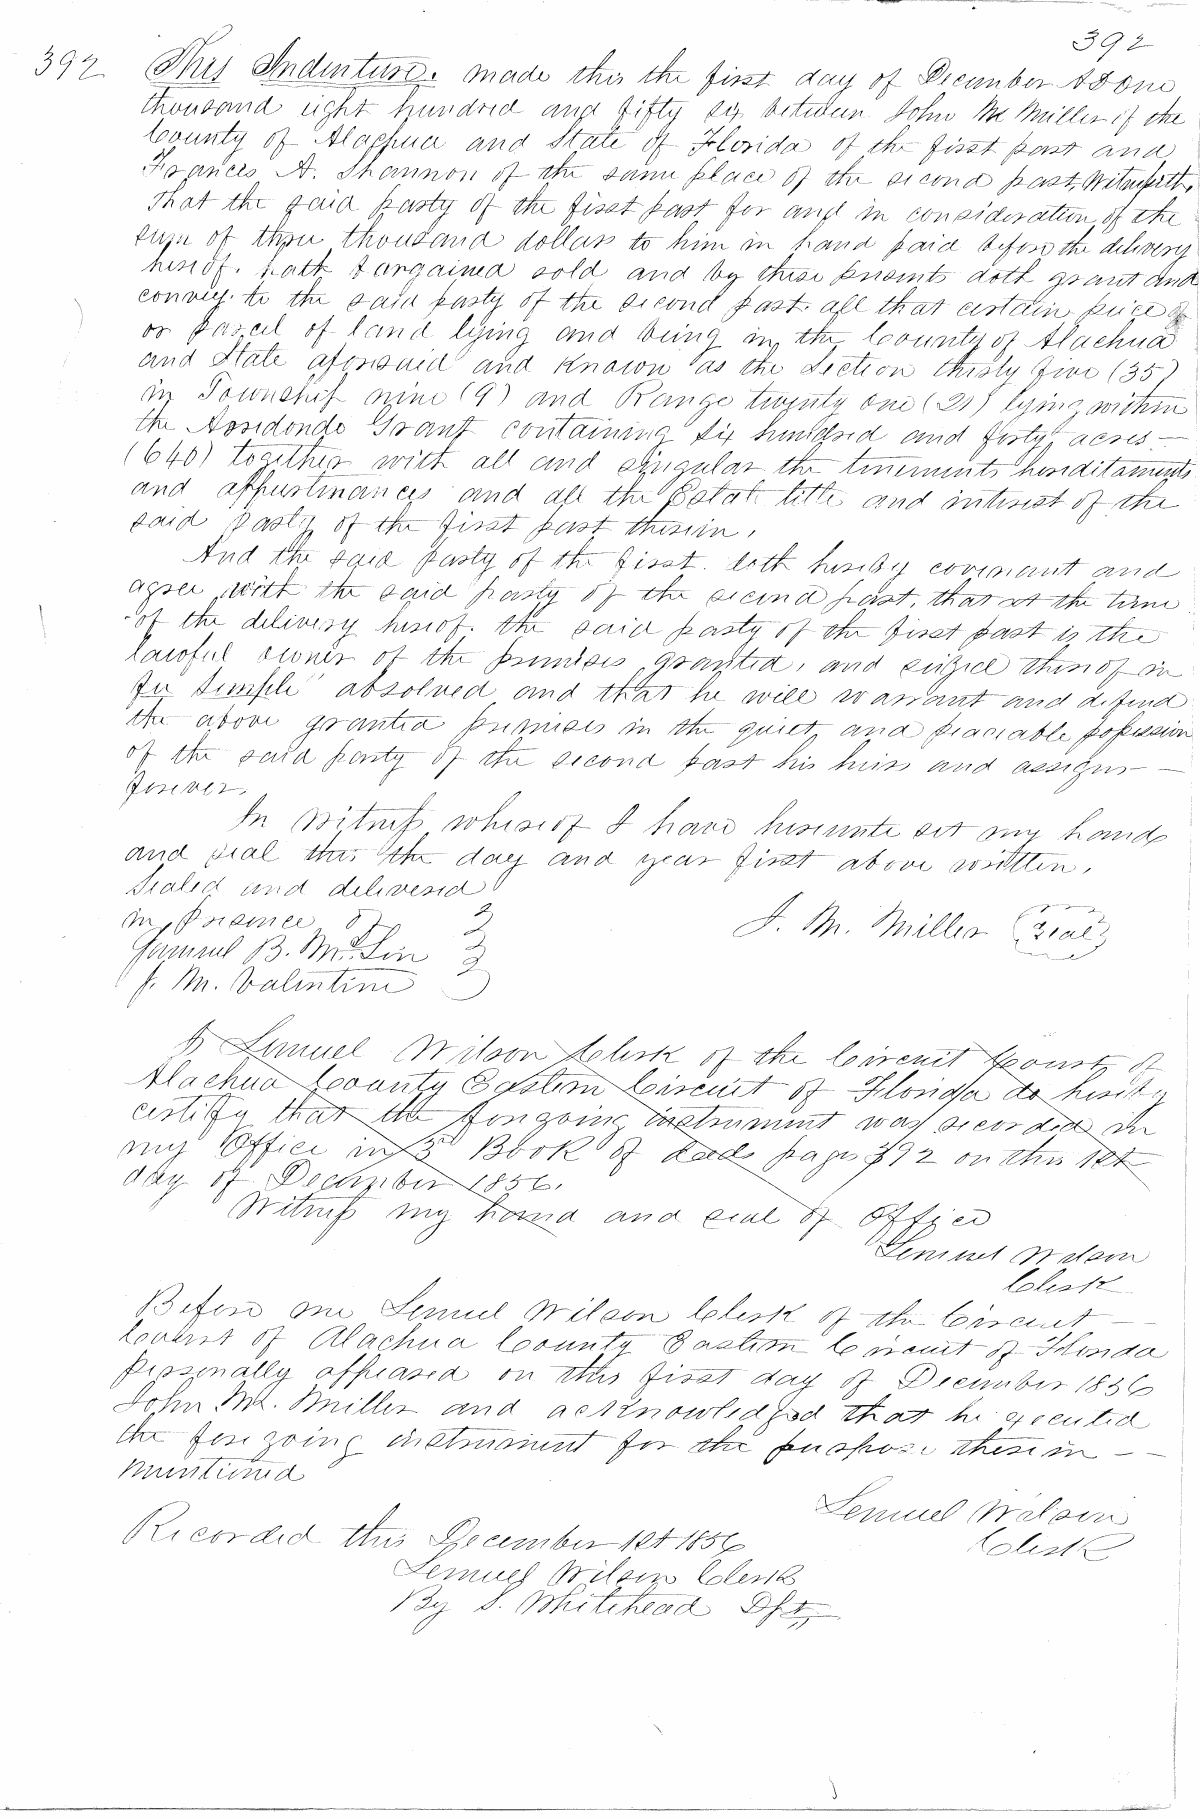 392
392 This Indenture. made this the first day of December AD One
thousand eight hundred and fifty six between John M Miller of the
County of Alachua and State of Florida of the first part and
Frances A. Shannon of the same place of the second part, Witnesseth,
That the said party of the first part for and in consideration of the
sum of three thousand dollars to him in hand paid before the delivery
hereof. hath bargained sold and by these presents doth grant and
convey. to the said party of the second part. all that certain piece
or parcel of land lying and being in the County of Alachua
and State aforesaid and Known as the Section thirty five (35)
in Township nine (9) and Range twenty one (21) lying within
the Arredondo Grant containing six hundred and forty acres —
(640) together with all and singular the tenements hereditaments
and appurtenances and all the Estate title and interest of the
said party of the first part therein.
And the said party of the first. doth hereby covenant and
agree with the said party of the second part. that at the time
of the delivery hereof. the said party of the first part is the
lawful owner of the premises granted, and seized thereof in
fee simple absolved and that he will warrant and defend
the above granted premises in the quiet and peaceable possession
of the said party of the second part his heirs and assigns —
forever.
In Witness whereof I have hereunto set my hand
and seal this the day and year first above written.
Sealed and delivered
in presence of
J. M. Miller (Seal)
Samuel B. McLin
J. M. Valentine
I Lemuel Wilson Clerk of the Circuit Court of
Alachua County Eastern Circuit of Florida do hereby
certify that the foregoing instrument was recorded in
my Office in 3d Book of deeds page 392 on this 1st
day of December 1856.
Witness my hand and seal of Office
Lemuel Wilson
Clerk
Before me Lemuel Wilson Clerk of the Circuit —
Court of Alachua County Eastern Circuit of Florida
personally appeared on this first day of December 1856
John M. Miller and acknowledged that he executed
the foregoing instrument for the purpose therein —
mentioned
Lemuel Wilson
Clerk
Recorded this December 1st 1856
Lemuel Wilson Clerk
By S. Whitehead Dpt,